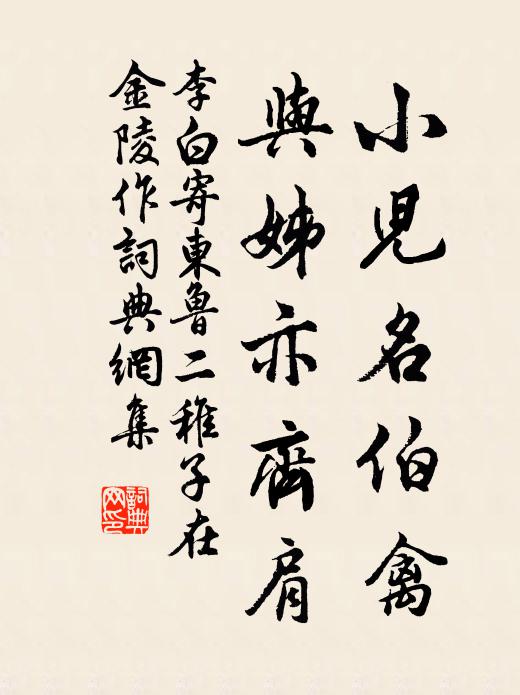 小兒名伯禽
與姊亦齊肩
李白寄東魯二稚子在
金陵作詞典網集
詞典
网印